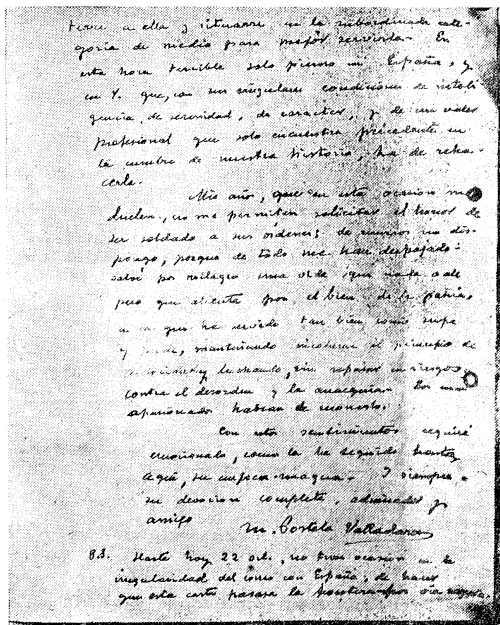 terne a ella y situarse en la subordinada cate-
goria de medio para mejor servirla. En
esta hora terrible solo pienso en España, y
en V. que, con sus singulares condiciones de inteli
gencia, de serenidad, de caracter, y de un valor
profesional que solo encuentra precedente en
la cumbre de nuestra historia, ha de reha-
cerla.
Mis años, que en esta ocasion me
duelen, no me permiten solicitar el honor de
ser soldado a sus órdenes; de no dis-
pongo, porque de todo me han despojado:
salvé por milagro una vida que nada vale
pero que alienta por el bien de la patria,
a la que he servido tan bien como supe
y pude, manteniendo el principio de
y luchando, sin reparar en riesgos
contra el desorden y la anarquia. Los mas
apasionados habran de reconocerlo.
Con estos sentimientos seguiré
emocionado, como la he seguido hasta
aqui, su empresa magna. I siempre
su devocion completa, admirador y
amigo
M. Portela Valladares
8.3. Hasta hoy 22 oct., no tuve ocasion en la
irregularidad del con España, de hacer
que esta carta pasara la frontera por via segura.